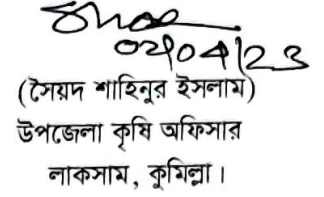 ০২/০৪/২৩
(সৈয়দ শাহিনুর ইসলাম)
উপজেলা কৃষি অফিসার
লাকসাম, কুমিল্লা।